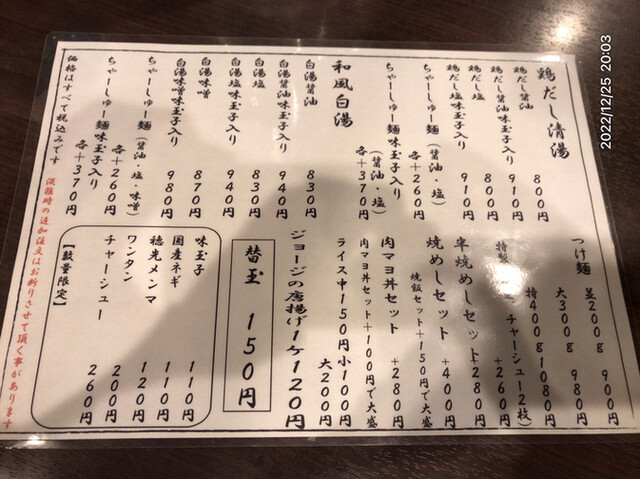 鶏だし清湯
鶏だし醤油 800円
鶏だし醤油味玉子入り 910円
鶏だし塩 800円
鶏だし塩味玉子入り 910円
ちゃーしゅー麺 (醤油・塩) 各+260円
ちゃーしゅー麺味玉子入り (醤油・塩) 各+370円
和風白湯
白湯醤油 830円
白湯醤油味玉子入り 940円
白湯塩 830円
白湯塩味玉子入り 940円
白湯味噌 870円
白湯味噌味玉子入り 980円
ちゃーしゅー麺 (醤油・塩・味噌) 各+260円
ちゃーしゅー麺味玉子入り 各+370円
価格はすべて税込みです
つけ麺 並200g 900円
大300g 980円
特400g 1080円
特製 チャーシュー2枚) +260円
串焼めしセット +280円
焼めしセット +400円
焼飯セット+150円で大盛
肉マヨ丼セット +280円
肉マヨ丼セット+100円で大盛
ライス中150円 小100円
大200円
ジョージの唐揚げ1ケ120円
替玉 150円
味玉子 110円
国産ネギ 110円
穂先メンマ 120円
ワンタン 200円
チャーシュー 260円
【数量限定】
混雑時の追加注文はお断りさせて頂く事があります
2022/12/25 20:03